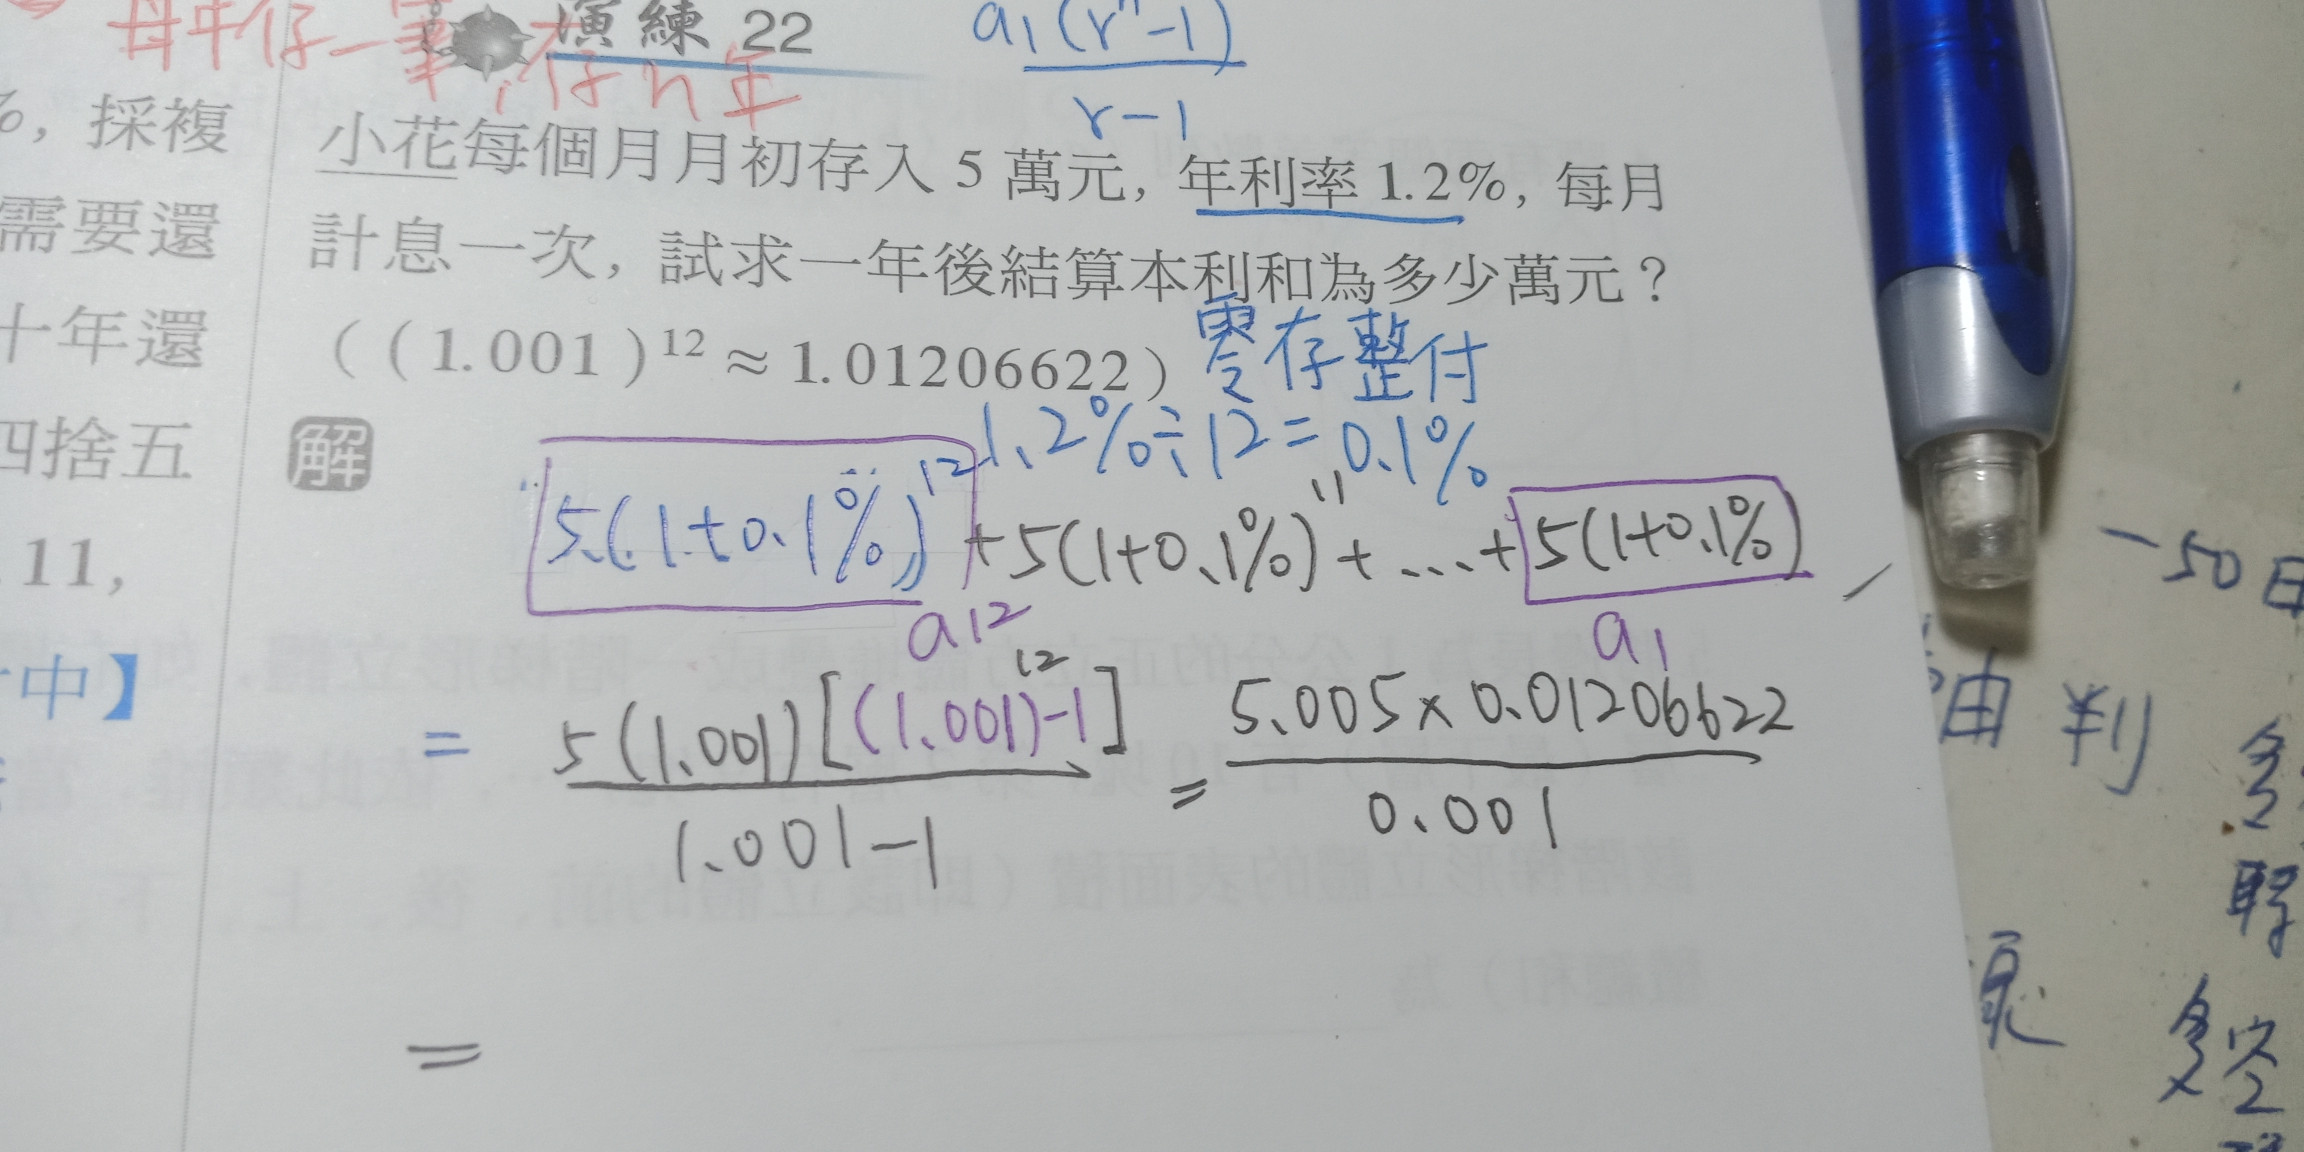 每年存一筆,存n年
演練 22
a₁(rⁿ-1)
r-1
小花每個月月初存入 5 萬元, 年利率 1.2%, 每月
計息一次, 試求一年後結算本利和為多少萬元?
((1.001)¹² ≈ 1.01206622) 零存整付
解
1.2%÷12=0.1%
5(1+0.1%)¹²+5(1+0.1%)¹¹+...+5(1+0.1%)
a12
a₁
= 5(1.001)[(1.001)¹²-1] = 5.005×0.01206622
1.001-1
0.001
=
%, 採複
需要還
十年還
四捨五
11,
中】
-50
由 判